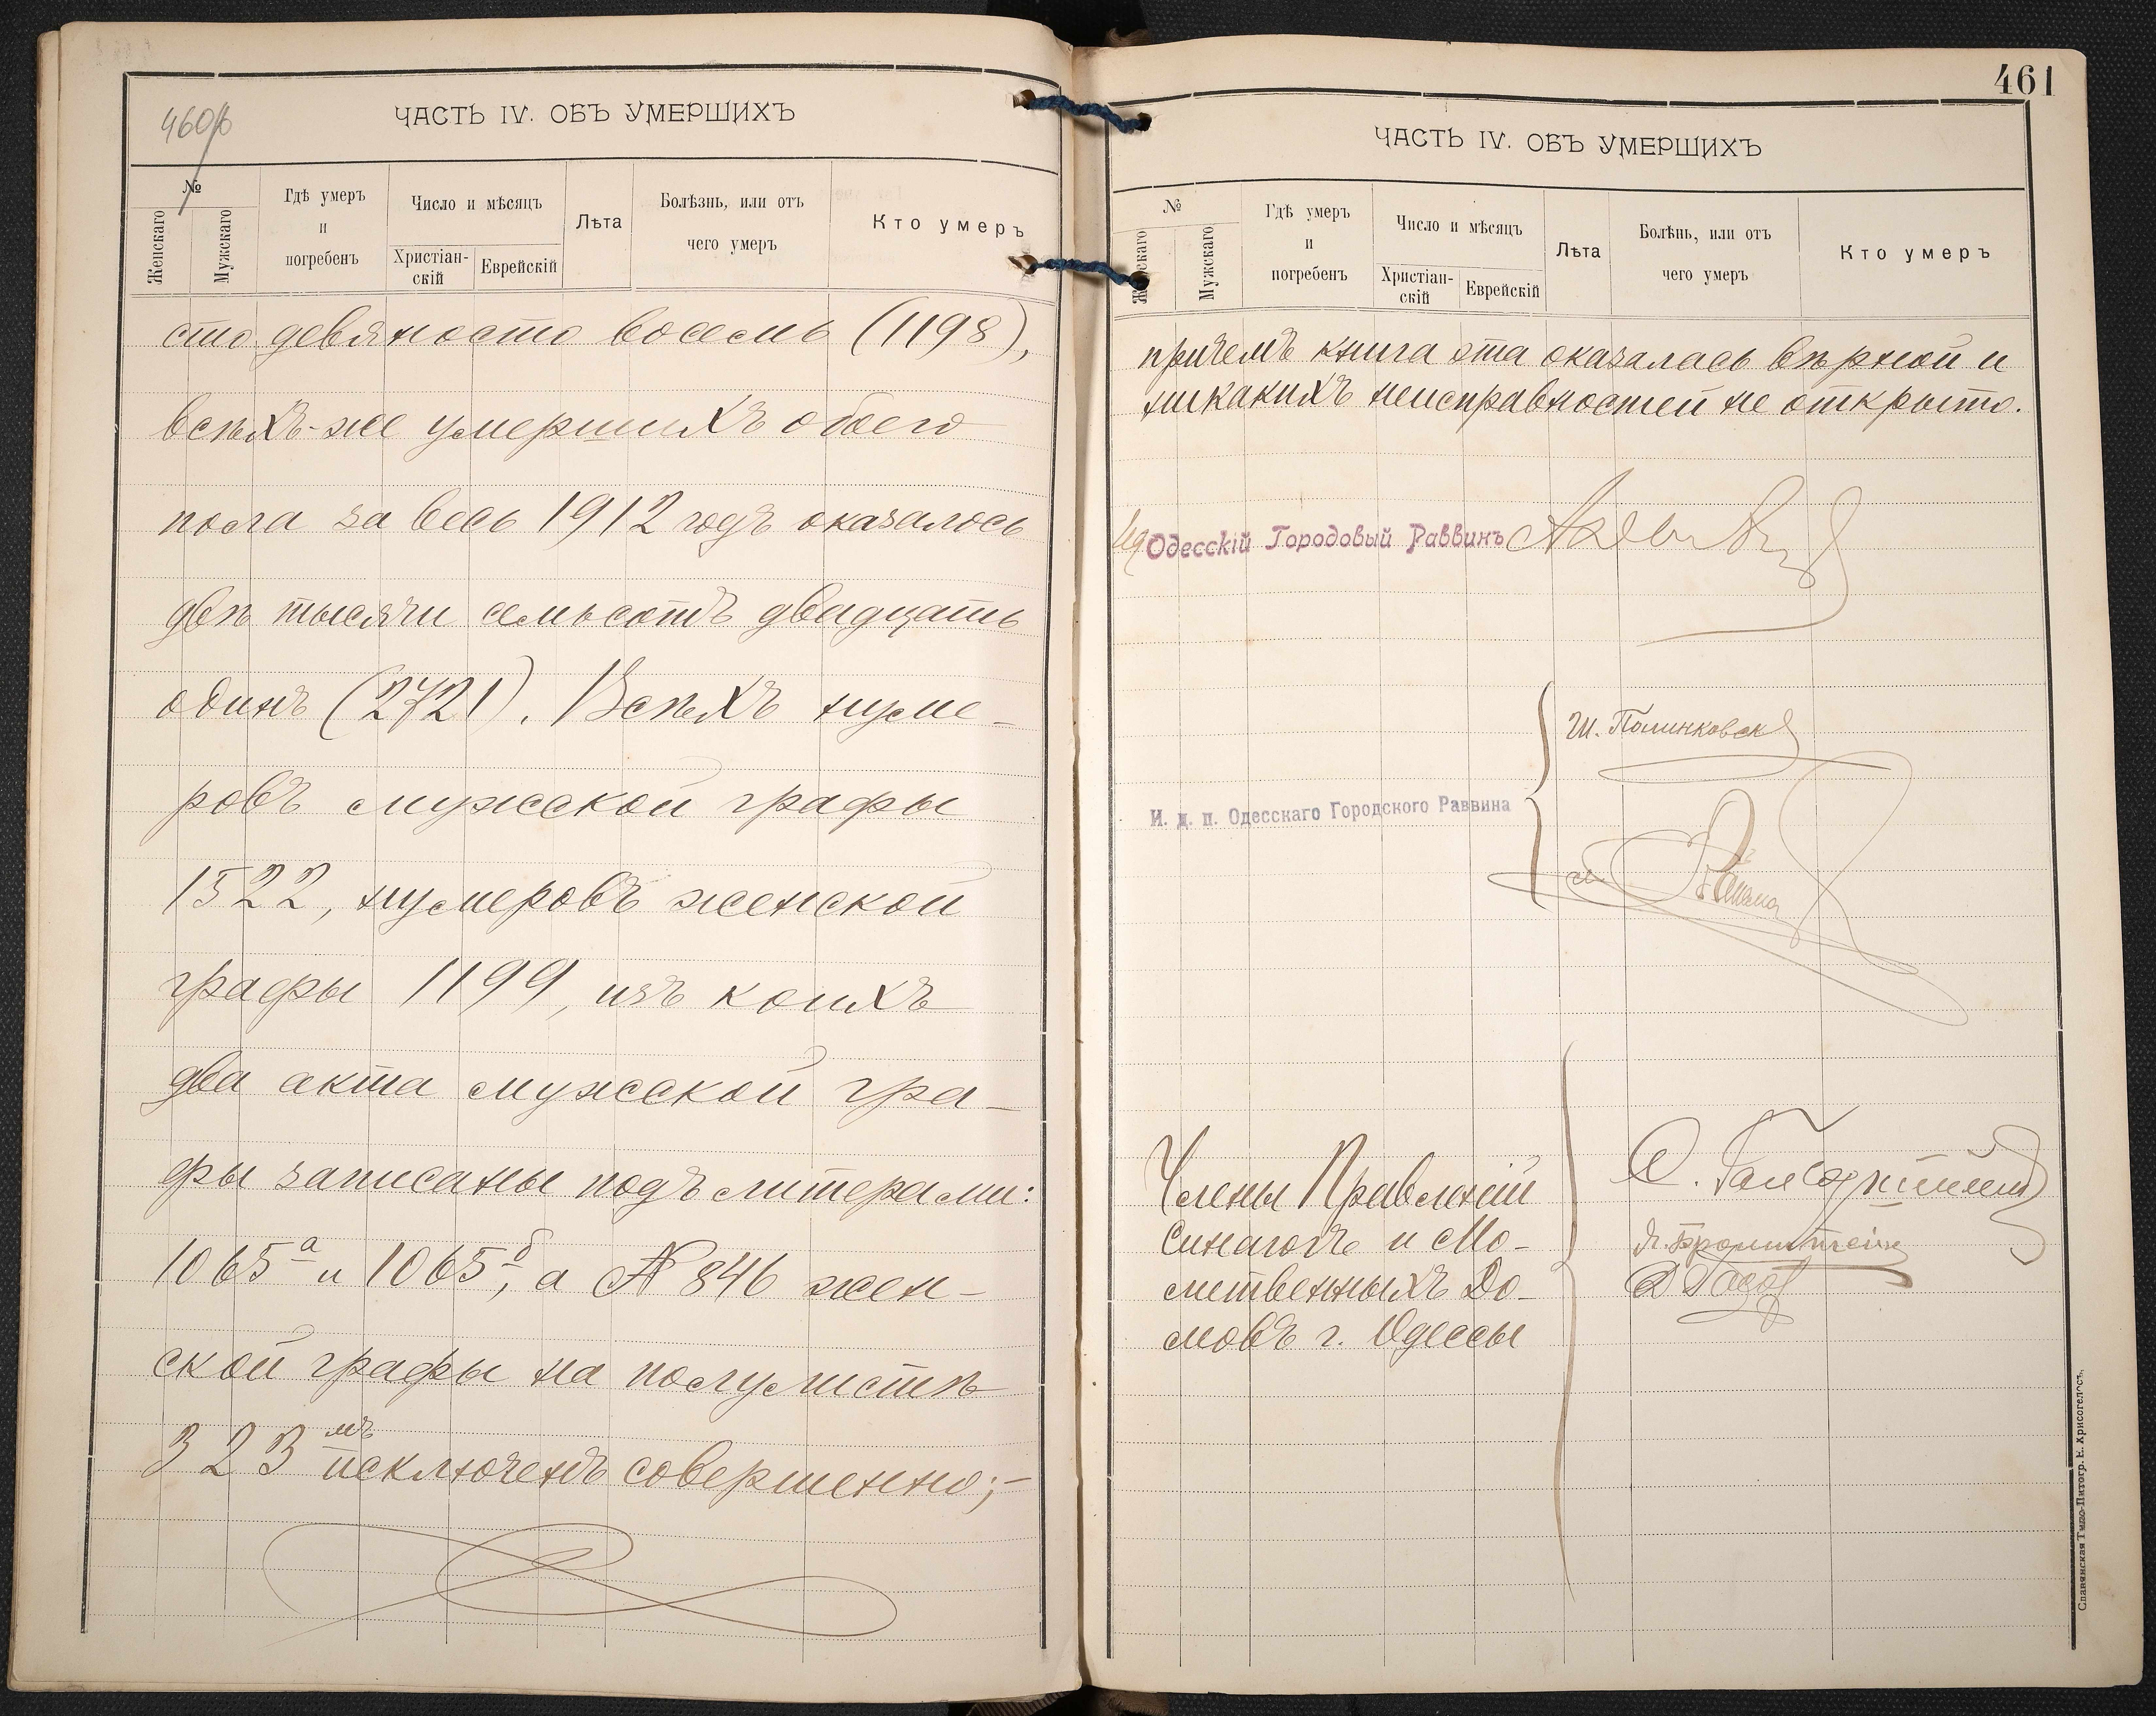 460об
ЧАСТЬ IV. ОБЪ УМЕРШИХЪ
№
Женскаго
Мужскаго
Гдѣ умеръ
и
погребенъ
Число и мѣсяцъ
Христіан-
скій
Еврейскій
Лѣта
Болѣзнь, или отъ
чего умеръ
Кто умеръ
сто девяносто восемь (1198),
всѣхъ-же умершихъ обоего
пола за весь 1912 годъ оказалось
двѣ тысячи семьсотъ двадцать
одинъ (2721). Всѣхъ нуме-
ровъ мужской графы
1522, нумеровъ женской
графы 1199, изъ коихъ
два акта мужской гра-
фы записаны подъ литерами:
1065а и 1065б, а № 846 жен-
ской графы на полулистѣ
323мъ исключенъ совершенно;-
461
ЧАСТЬ IV. ОБЪ УМЕРШИХЪ
№
Женскаго
Мужскаго
Гдѣ умеръ
и
погребенъ
Число и мѣсяцъ
Христіан-
скій
Еврейскій
Лѣта
Болѣнь, или отъ
чего умеръ
Кто умеръ
причемъ книга эта оказалась вѣрной и
никакихъ неисправностей не открыто.
Одесскій Городовый Раввинъ
Ш. Полинковск
И. д. п. Одесскаго Городского Раввина
Члены Правленій
Синагогъ и Мо-
литвенныхъ До-
мовъ г. Одессы
Я. Бронштейнъ
Славянская Типо-Литогр. Н. Хрисогелосъ.